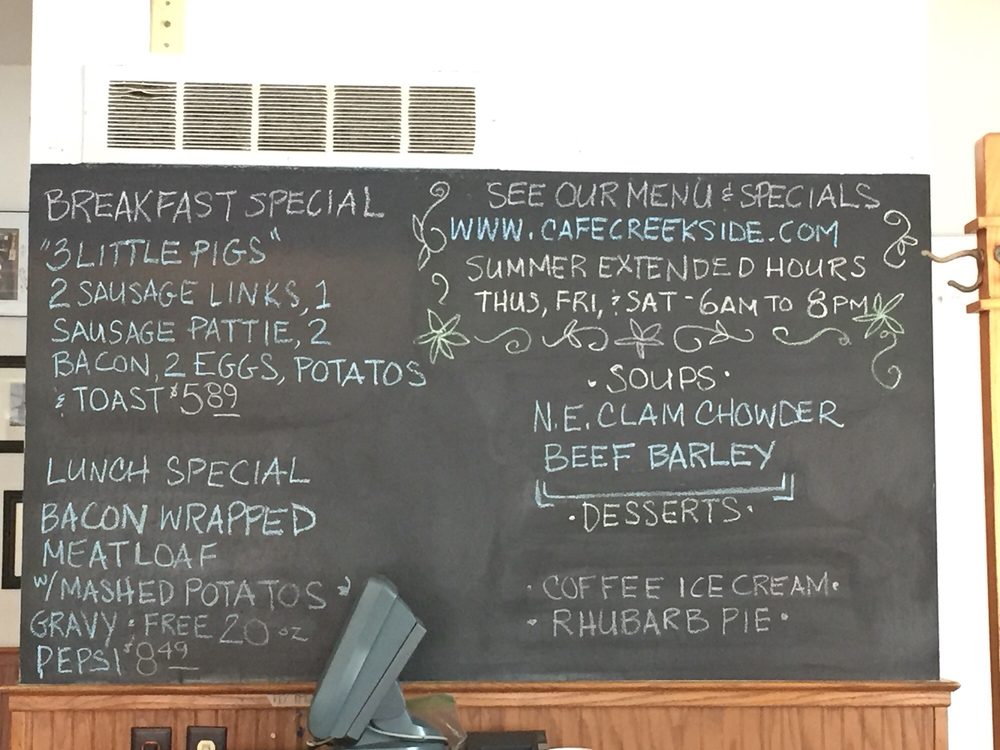 BREAKFAST SPECIAL
"3 LITTLE PIGS"
2 SAUSAGE LINKS, 1
SAUSAGE PATTIE, 2
BACON, 2 EGGS, POTATOS
& TOAST $5 89
LUNCH SPECIAL
BACON WRAPPED
MEATLOAF
W/MASHED POTATOS &
GRAVY • FREE 20 oz
PEPSI $8 49
SEE OUR MENU & SPECIALS
WWW.CAFECREEKSIDE.COM
SUMMER EXTENDED HOURS
THUS, FRI, & SAT - 6AM TO 8PM
• SOUPS •
N.E. CLAM CHOWDER
BEEF BARLEY
• DESSERTS •
• COFFEE ICE CREAM •
• RHUBARB PIE •